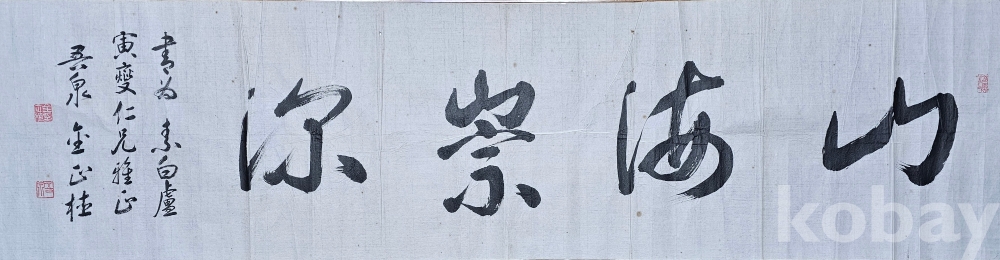 山海崇深
書為 素白盧
寅燮仁兄雅正
吾泉 金正桂
kobay